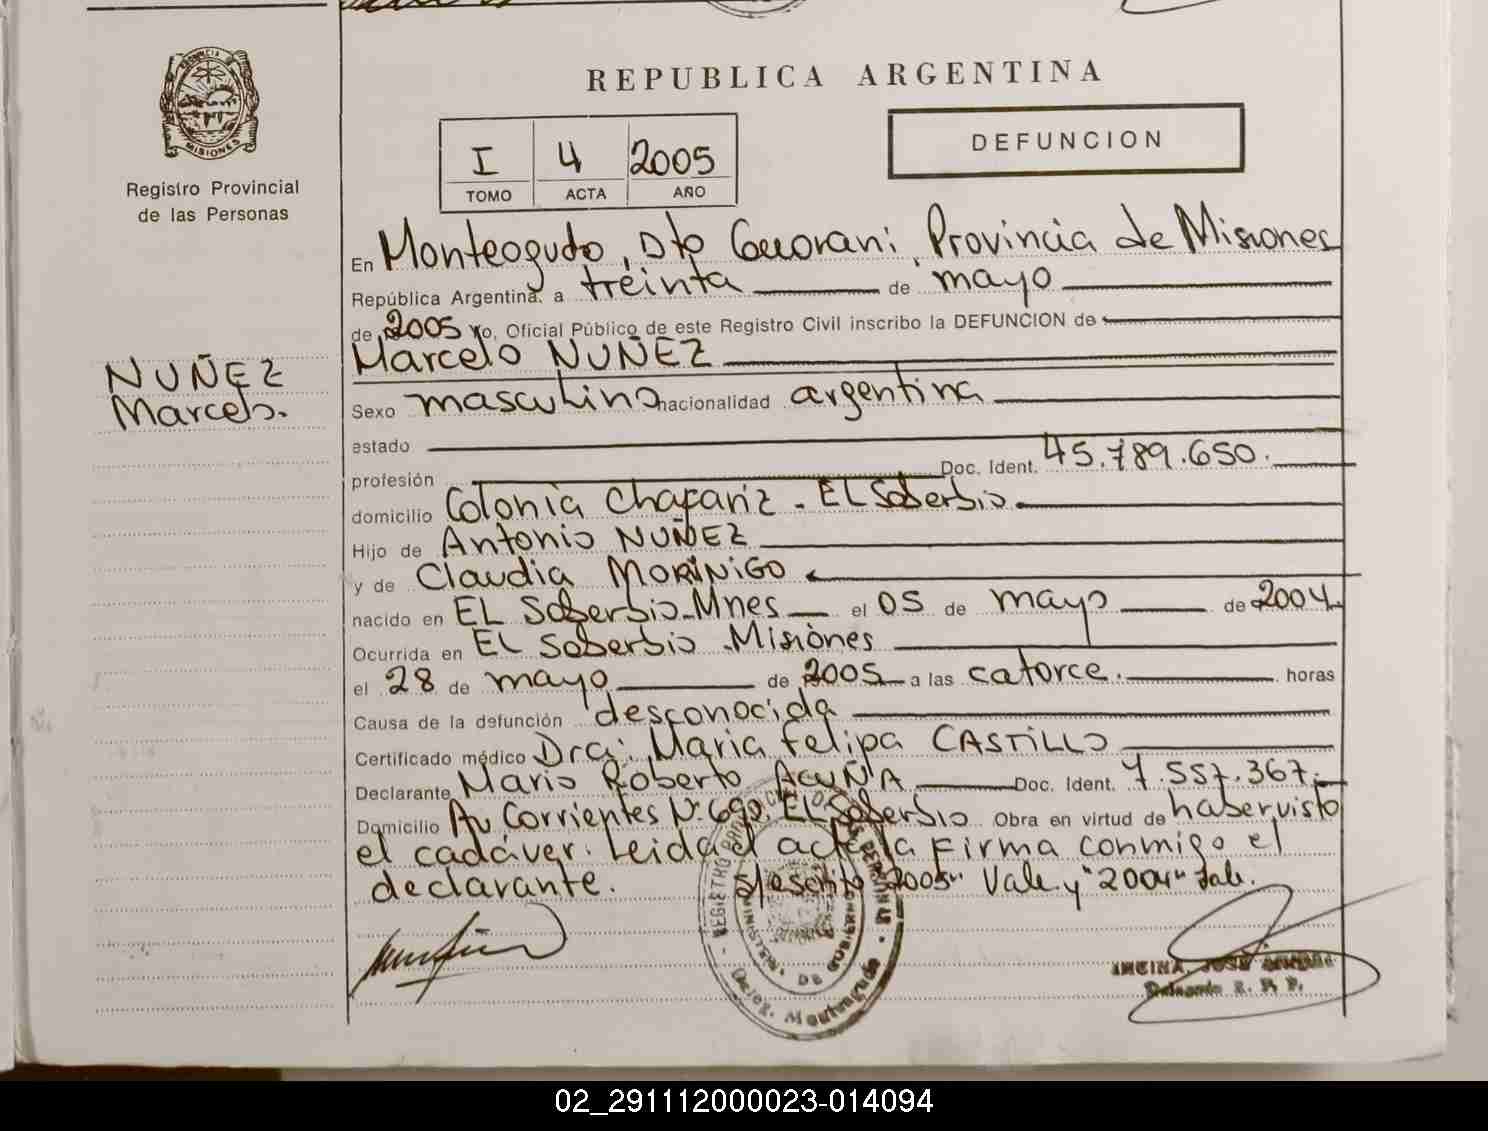 PROVINCIA DE
MISIONES
Registro Provincial
de las Personas
NUÑEZ
Marcelo.
REPUBLICA ARGENTINA
I 4 2005
TOMO ACTA AÑO
DEFUNCION
En Monteagudo, Dto Guarani, Provincia de Misiones
República Argentina, a treinta de mayo
de 2005 Yo, Oficial Público de este Registro Civil inscribo la DEFUNCION de
Marcelo NUÑEZ
Sexo masculino nacionalidad argentina
estado
profesión Doc. Ident. 45.789.650.
domicilio Colonia Chafariz - EL Soberbio.
Hijo de Antonio NUÑEZ
y de Claudia MORINIGO
nacido en EL Soberbio-Mnes el 05 de mayo de 2004
Ocurrida en EL Soberbio -Misiones
el 28 de mayo de 2005 a las catorce. horas
Causa de la defunción desconocida
Certificado médico Dra: Maria Felipa CASTILLO
Declarante Mario Roberto ACUÑA Doc. Ident. 7.557.367.
Domicilio Av Corrientes Nº 690. EL Soberbio Obra en virtud de haber visto
el cadáver. Leida el acta la firma conmigo el
declarante. S/escrito "2005" Vale y "2004" Vale.
REGISTRO PROVINCIAL DE LAS PERSONAS
MINISTERIO DE GOBIERNO
Deleg. Monteagudo
ENCINA, JOSE
Delegado R. P. P.
02_291112000023-014094